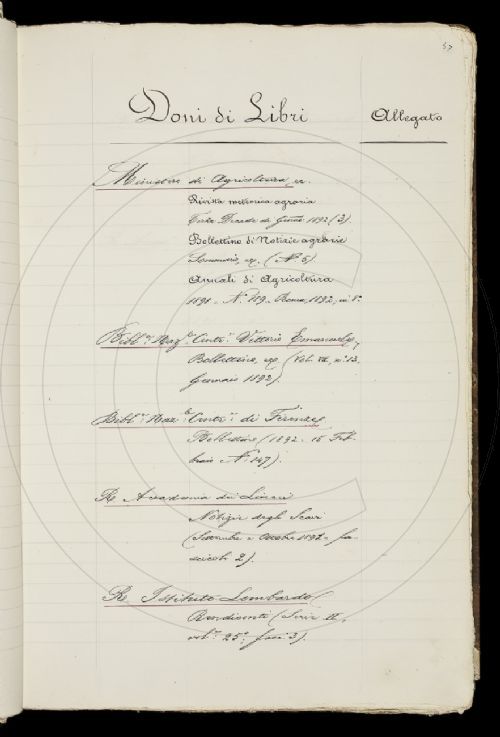 57
Doni di Libri
Allegato
Ministero di Agricoltura, ec.
Rivista meteorica agraria
Terza Decade di Genn. 1892 (3).
Bollettino di Notizie agrarie
Sommario, ec. (N° 5)
Annali di Agricoltura
1891 - N. 189 - Roma, 1892, in 8°
Bibl.ª Naz.le Centr.le Vittorio Emanuele,
Bollettino, ec. (Vol. VII, n.° 13,
Gennaio 1892).
Bibl.ª Naz.le Centr.le di Firenze
Bollettino (1892. 15 Feb-
braio N.° 147).
R. Accademia dei Lincei
Notizie degli Scavi
(Settembre e Ottobre 1892 - fa-
scicoli 2).
R. Istituto Lombardo
Rendiconti (Serie II,
vol.e 25°, fasc. 3).